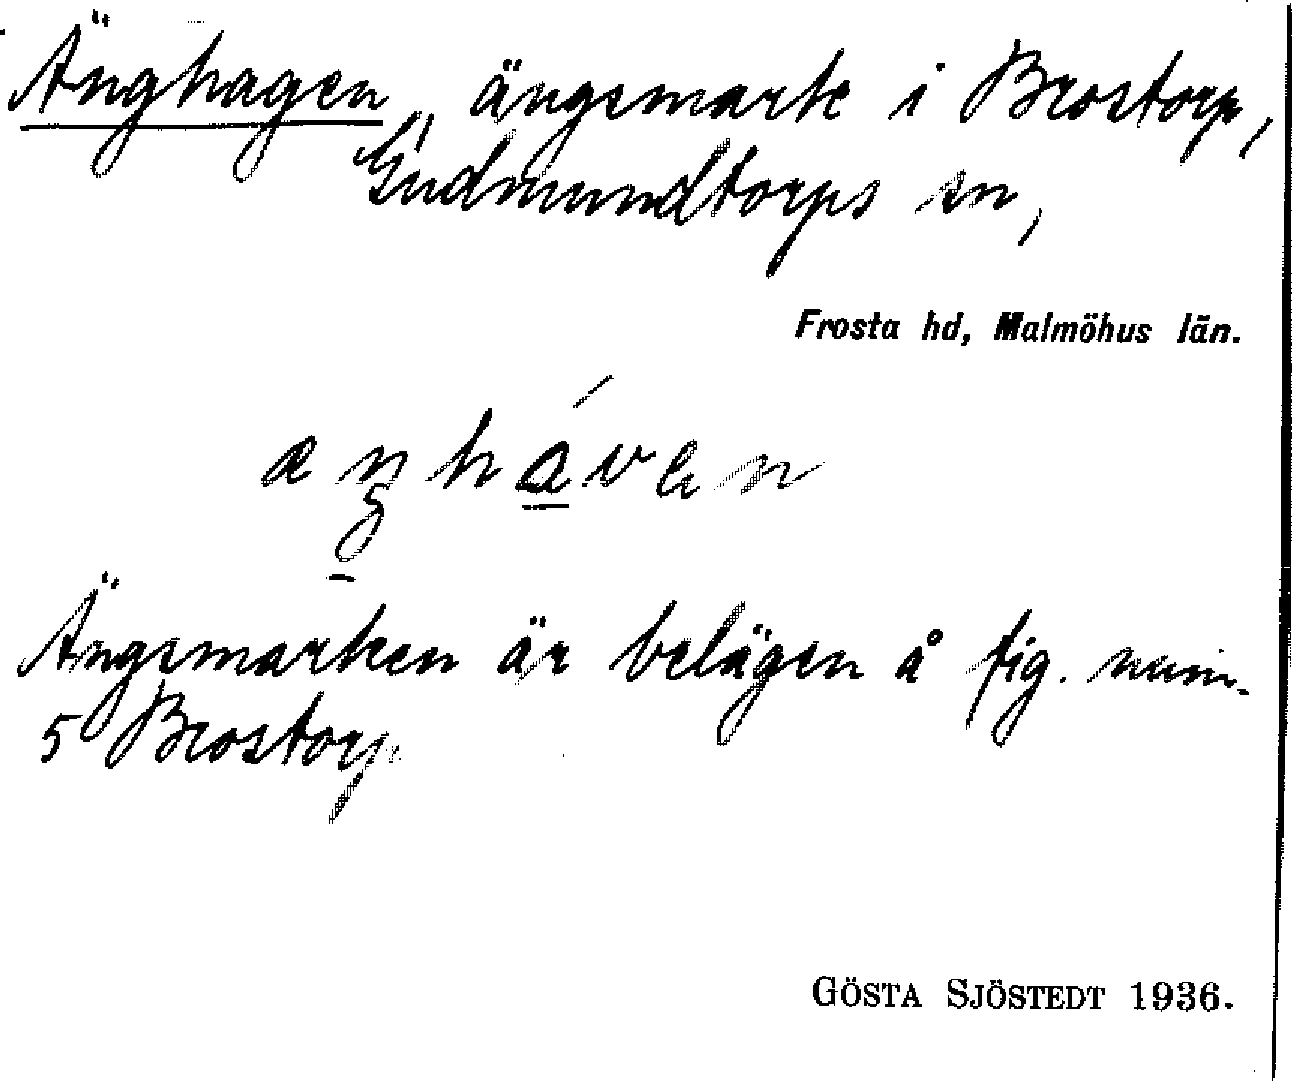 Änghagen, ängsmark i Brostorp,
Gudmundtorps sn,
Frosta hd, Malmöhus län.
Ängsmarken är belägen å fig. num.
5 Brostorp.
GÖSTA SJÖSTEDT 1936.